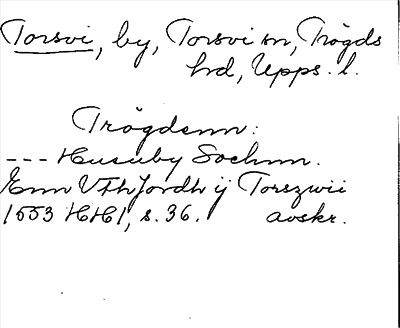 Torsvi, by, Torsvi sn, Trögds
hd, Upps. l.
Trögdenn:
--- Husuby Sochnn.
Enn Uthjordh ij Torszwii
1553 HH1, s. 36. avskr.